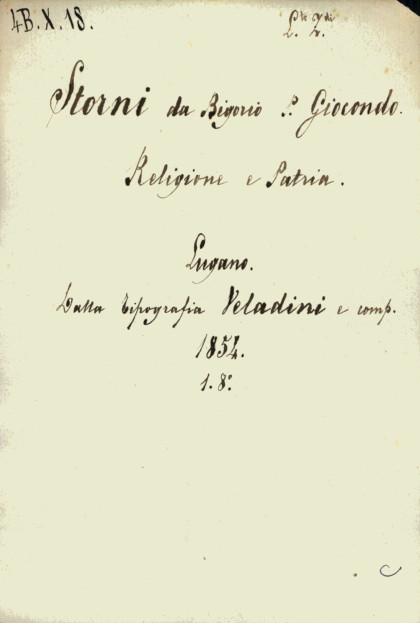 4B.X.18.
L. 2.
Storni da Bigorio P. Giocondo.
Religione e Patria.
Lugano.
Dalla Tipografia Veladini e comp.
1854.
1. 8°